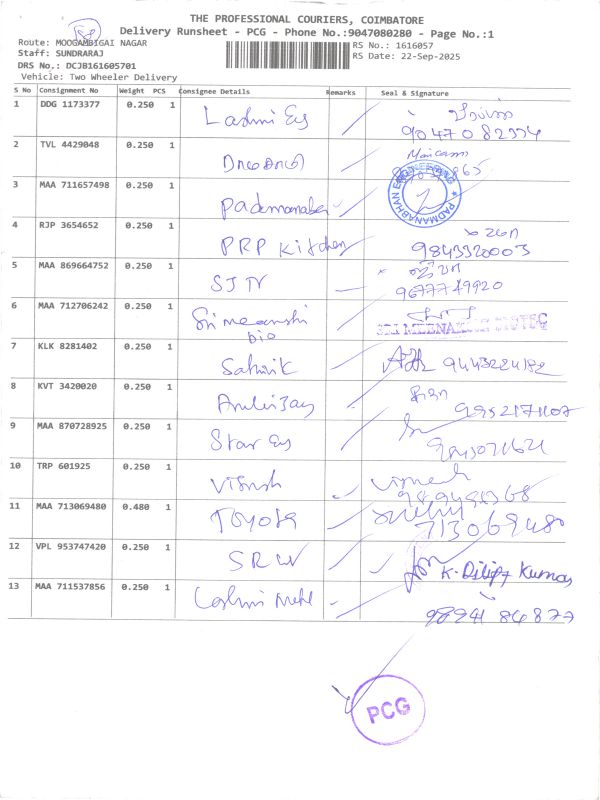 THE PROFESSIONAL COURIERS, COIMBATORE
Delivery Runsheet - PCG - Phone No.:9047080280 - Page No.:1
Route: MOOGAMBIGAI NAGAR
RS No.: 1616057
Staff: SUNDRARAJ
RS Date: 22-Sep-2025
DRS No.: DCJB161605701
Vehicle: Two Wheeler Delivery
S No Consignment No Weight PCS Consignee Details Remarks Seal & Signature
1 DDG 1173377 0.250 1 Laxmi Eng
2 TVL 4429048 0.250 1
3 MAA 711657498 0.250 1 Padmanaban
PADMANABHAN ENGINEERING
4 RJP 3654652 0.250 1 PRP Kitchen 9843320003
5 MAA 869664752 0.250 1 SJTV 9677749920
6 MAA 712706242 0.250 1 Sri meenakshi
bio SRI MEENAKSHI BIOTEC
7 KLK 8281402 0.250 1 Sathvik
8 KVT 3420020 0.250 1
9 MAA 870728925 0.250 1 Star Eng
10 TRP 601925 0.250 1
11 MAA 713069480 0.480 1 Toyota 713069480
12 VPL 953747420 0.250 1 SRW K. Dilip Kumar
13 MAA 711537856 0.250 1 98941 86877
PCG